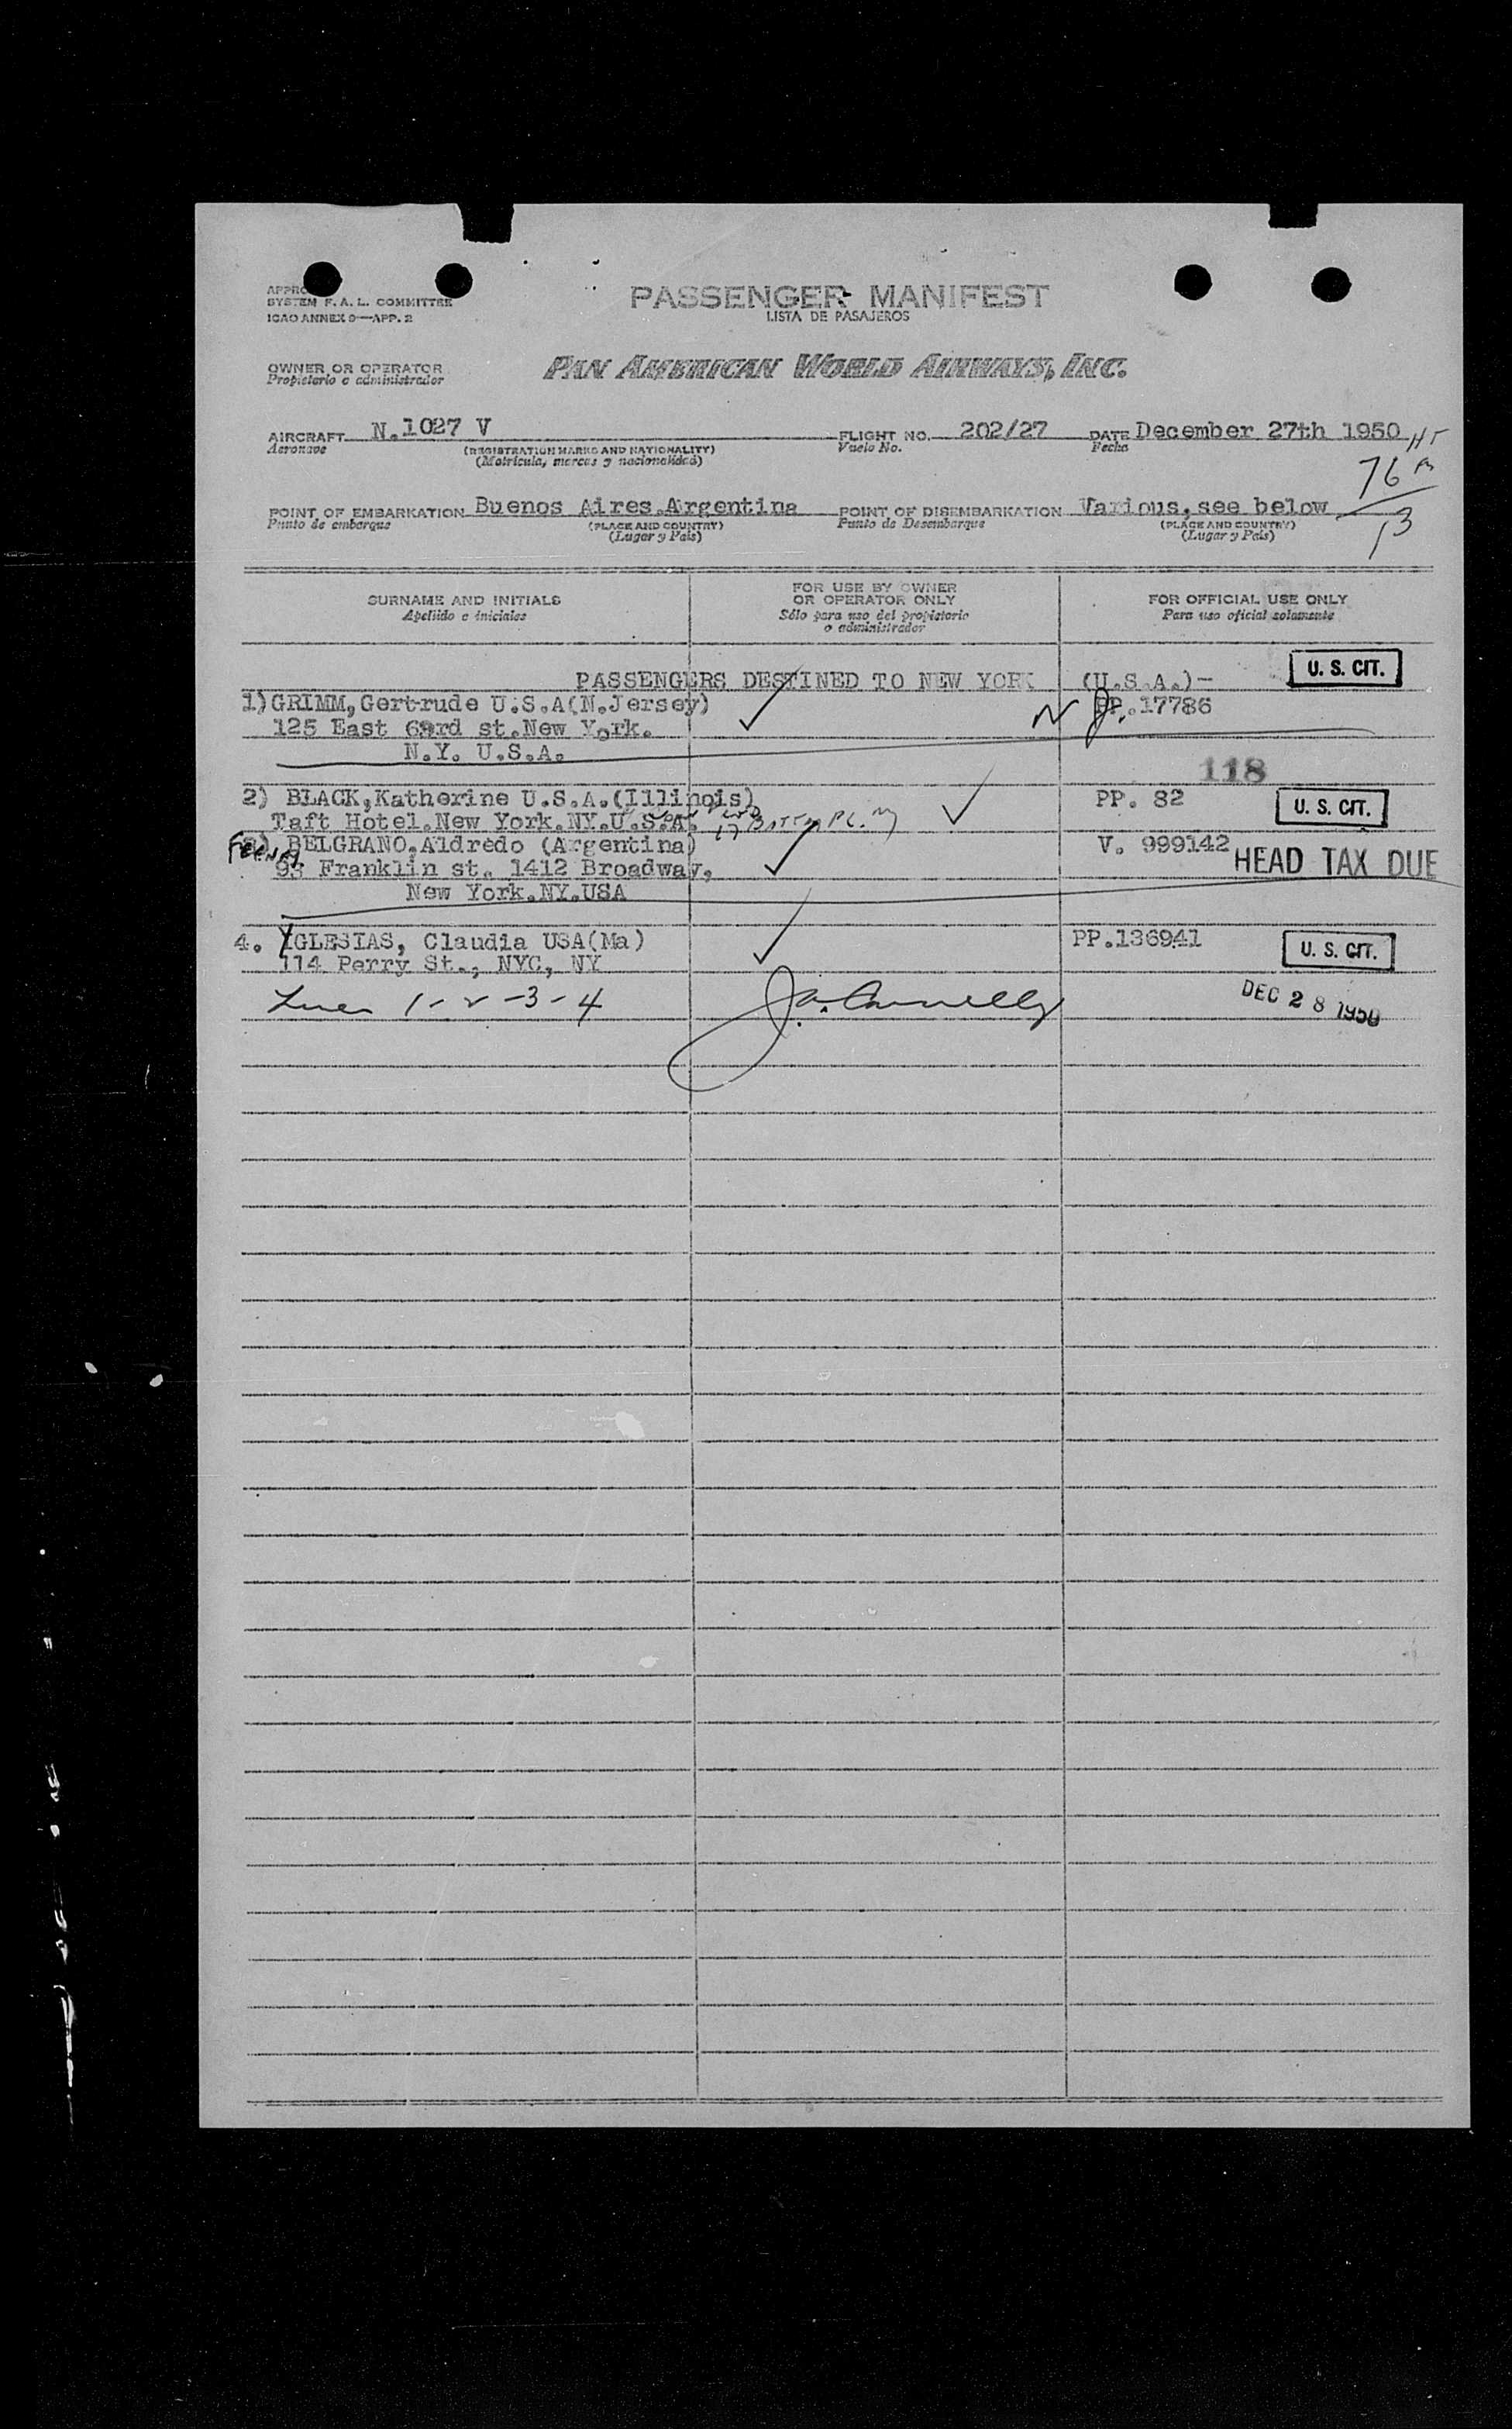 SYSTEM F. A. L. COMMITTEE
ICAO ANNEX 9—APP. 2
PASSENGER MANIFEST
LISTA DE PASAJEROS
OWNER OR OPERATOR
Propietario o administrador
PAN AMERICAN WORLD AIRWAYS, INC.
AIRCRAFT N.1027 V FLIGHT NO. 202/27 DATE December 27th 1950 HT
Aeronave (REGISTRATION MARKS AND NATIONALITY) Vuelo No. Fecha
(Matrícula, marcas y nacionalidad)
76
13
POINT OF EMBARKATION Buenos Aires.Argentina POINT OF DISEMBARKATION Various, see below
Punto de embarque (PLACE AND COUNTRY) Punto de Desembarque (PLACE AND COUNTRY)
(Lugar y País) (Lugar y País)
SURNAME AND INITIALS
Apellido e iniciales
FOR USE BY OWNER
OR OPERATOR ONLY
Sólo para uso del propietario
o administrador
FOR OFFICIAL USE ONLY
Para uso oficial solamente
PASSENGERS DESTINED TO NEW YORK (U.S.A.)- U. S. CIT.
1) GRIMM, Gertrude U.S.A(N.Jersey) PP.17786
125 East 63rd st.New York.
N.Y. U.S.A.
118
2) BLACK, Katherine U.S.A.(Illinois) PP. 82 U. S. CIT.
Taft Hotel.New York.NY.U.S.A. 17 PL. NY
BELGRANO, Aldredo (Argentina) V. 999142 HEAD TAX DUE
Franklin st. 1412 Broadway,
New York.NY.USA
4. YGLESIAS, Claudia USA(Ma) PP.136941 U. S. CIT.
114 Perry St., NYC, NY
Lines 1-2-3-4 DEC 28 1950